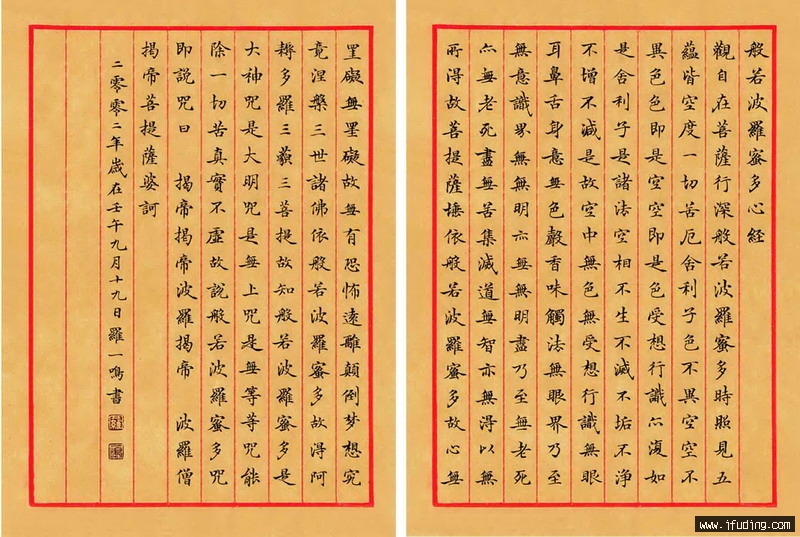 般若波羅蜜多心経
觀自在菩薩行深般若波羅蜜多時照見五
蘊皆空度一切苦厄舍利子色不異空空不
異色色即是空空即是色受想行識亦復如
是舍利子是諸法空相不生不滅不垢不淨
不增不減是故空中無色無受想行識無眼
耳鼻舌身意無色聲香味觸法無眼界乃至
無意識界無無明亦無無明盡乃至無老死
亦無老死盡無苦集滅道無智亦無得以無
所得故菩提薩埵依般若波羅蜜多故心無
罣礙無罣礙故無有恐怖遠離顛倒梦想究
竟涅槃三世諸佛依般若波羅蜜多故得阿
耨多羅三藐三菩提故知般若波羅蜜多是
大神咒是大明咒是無上咒是無等等咒能
除一切苦真實不虛故說般若波羅蜜多咒
即說咒曰 揭帝揭帝波羅揭帝 波羅僧
揭帝菩提薩婆訶
二零零二年歲在壬午九月十九日羅一鳴書
www.jfuding.com